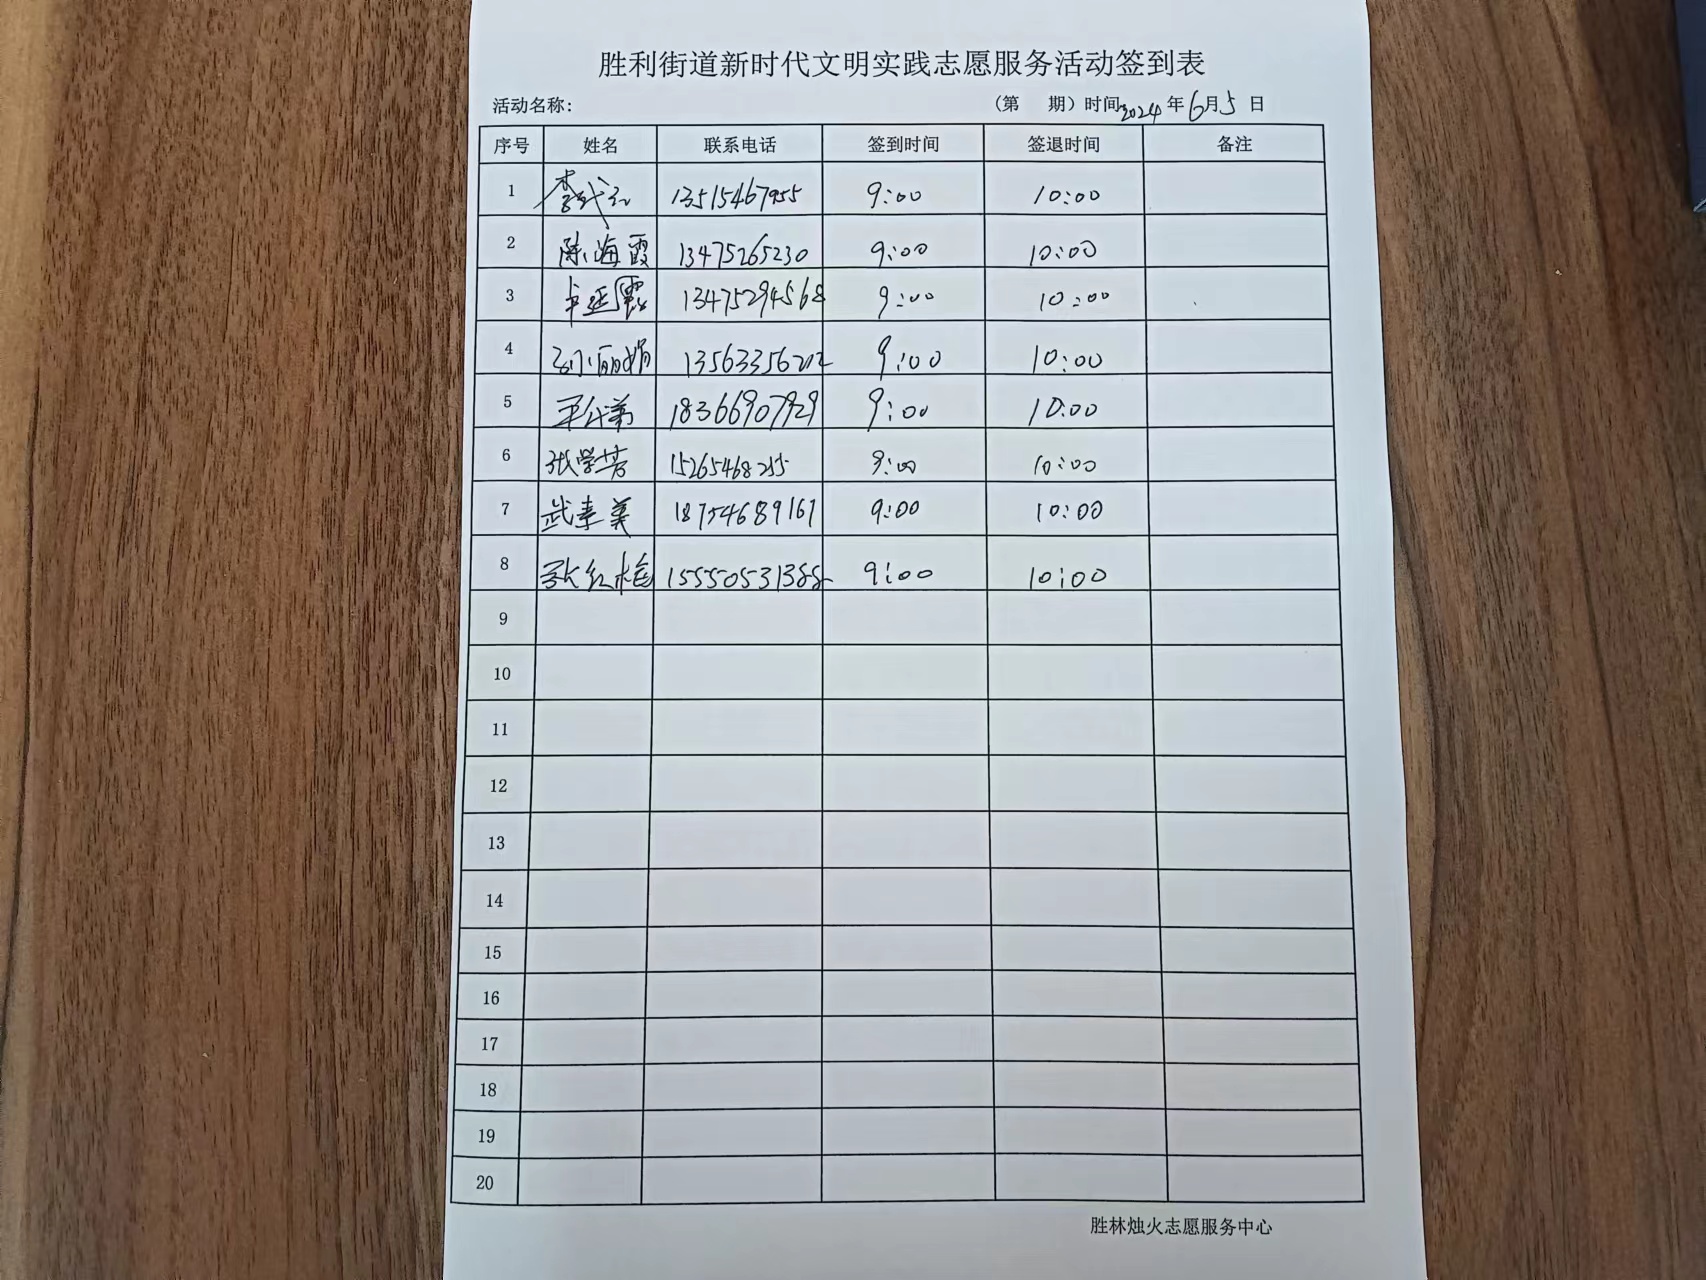 胜利街道新时代文明实践志愿服务活动签到表
活动名称: （第 期）时间2024年6月5日
序号 姓名 联系电话 签到时间 签退时间 备注
1 13515467955 9:00 10:00
2 陈海霞 13475265230 9:00 10:00
3 卓延霞 13475294568 9:00 10:00
4 孙丽娟 13563356202 9:00 10:00
5 18366907929 9:00 10:00
6 张学芳 15265468255 9:00 10:00
7 武素美 18754689167 9:00 10:00
8 15550531388 9:00 10:00
9
10
11
12
13
14
15
16
17
18
19
20
胜林烛火志愿服务中心